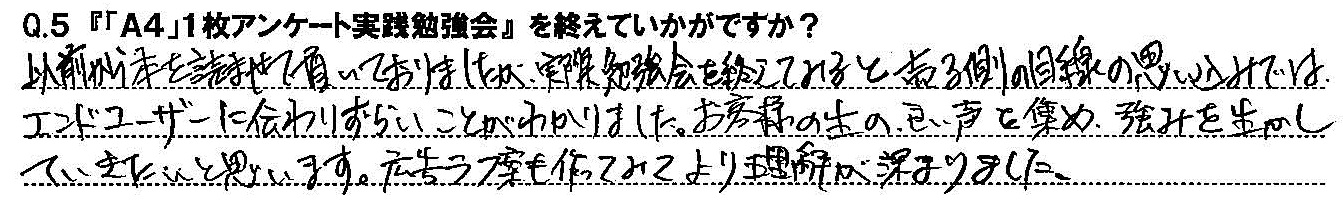 Q.5『「A4」1枚アンケート実践勉強会』を終えていかがですか？
以前から本を読ませて頂いておりましたが、実際勉強会を終えてみると売る側の目線の思い込みでは、
エンドユーザーに伝わりずらいことがわかりました。お客様の生の、良い声を集め、強みを生かし
ていきたいと思います。広告ラフ案も作ってみてより理解が深まりました。